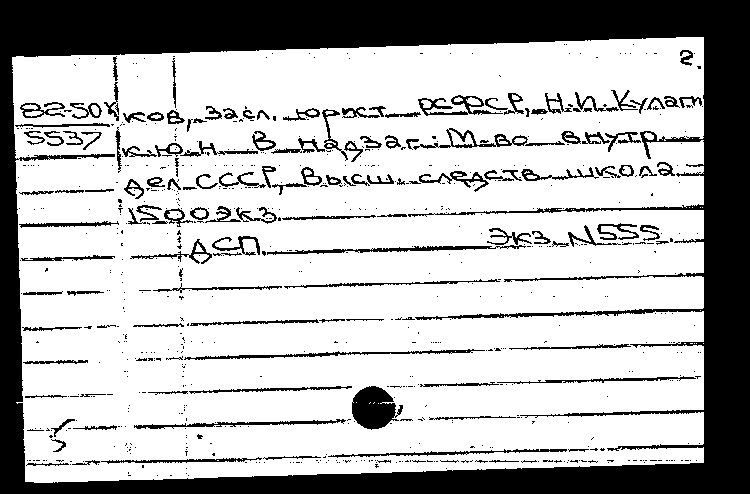 2.
82-50К ков, засл. юрист РСФСР, Н.И. Кулагин
5537 к.ю.н. В надзаг.: М-во внутр.
дел СССР, Высш. следств. школа -
1500 экз.
ДСП. Экз. N555.
5